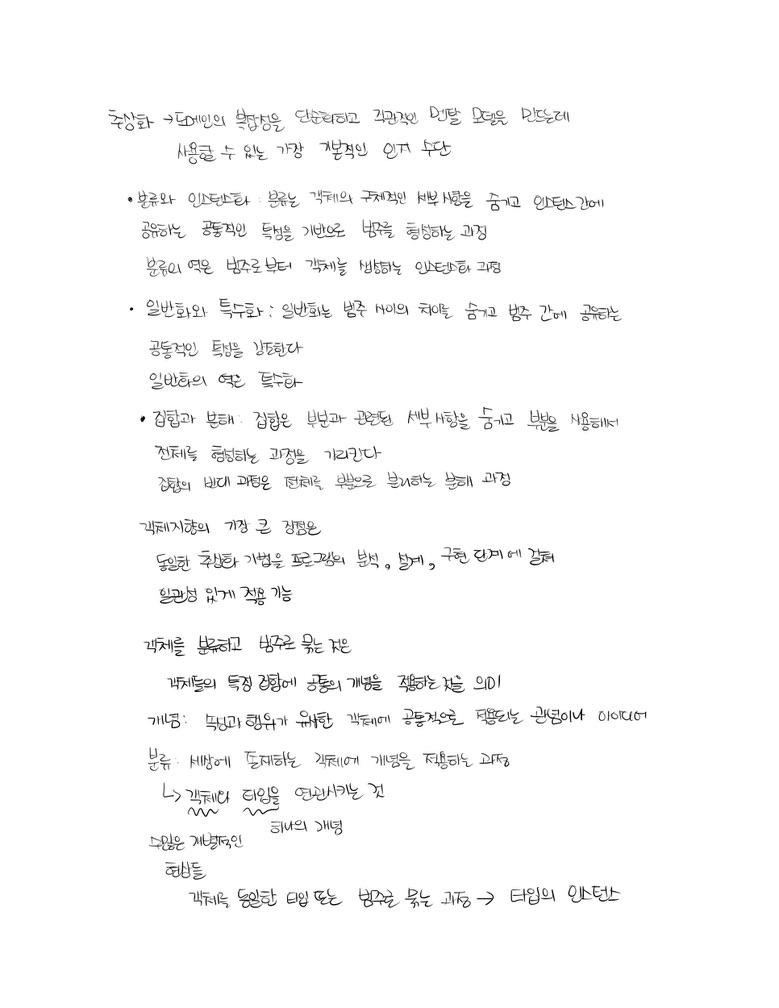 추상화 → 도메인의 복잡성을 단순화하고 직관적인 멘탈 모델을 만드는데
사용할 수 있는 가장 기본적인 인지 수단
• 분류와 인스턴스화 : 분류는 객체의 구체적인 세부 사항을 숨기고 인스턴스 간에
공유하는 공통적인 특성을 기반으로 범주를 형성하는 과정
분류의 역은 범주로부터 객체를 생성하는 인스턴스화 과정
• 일반화와 특수화 : 일반화는 범주 사이의 차이를 숨기고 범주 간에 공유하는
공통적인 특성을 강조한다
일반화의 역은 특수화
• 집합과 분해 : 집합은 부분과 관련된 세부 사항을 숨기고 부분을 사용해서
전체를 형성하는 과정을 가리킨다
집합의 반대 과정은 전체를 부분으로 분리하는 분해 과정
객체지향의 가장 큰 장점은
동일한 추상화 기법을 프로그램의 분석, 설계, 구현 단계에 걸쳐
일관성 있게 적용 가능
객체를 분류하고 범주로 묶는 것은
객체들의 특징 집합에 공통의 개념을 적용하는 것을 의미
개념 : 속성과 행위가 유사한 객체에 공통적으로 적용되는 관념이나 아이디어
분류 : 세상에 존재하는 객체에 개념을 적용하는 과정
↳ 객체와 타입을 연관시키는 것
하나의 개념
수많은 개별적인
현상들
객체를 동일한 타입 또는 범주로 묶는 과정 → 타입의 인스턴스